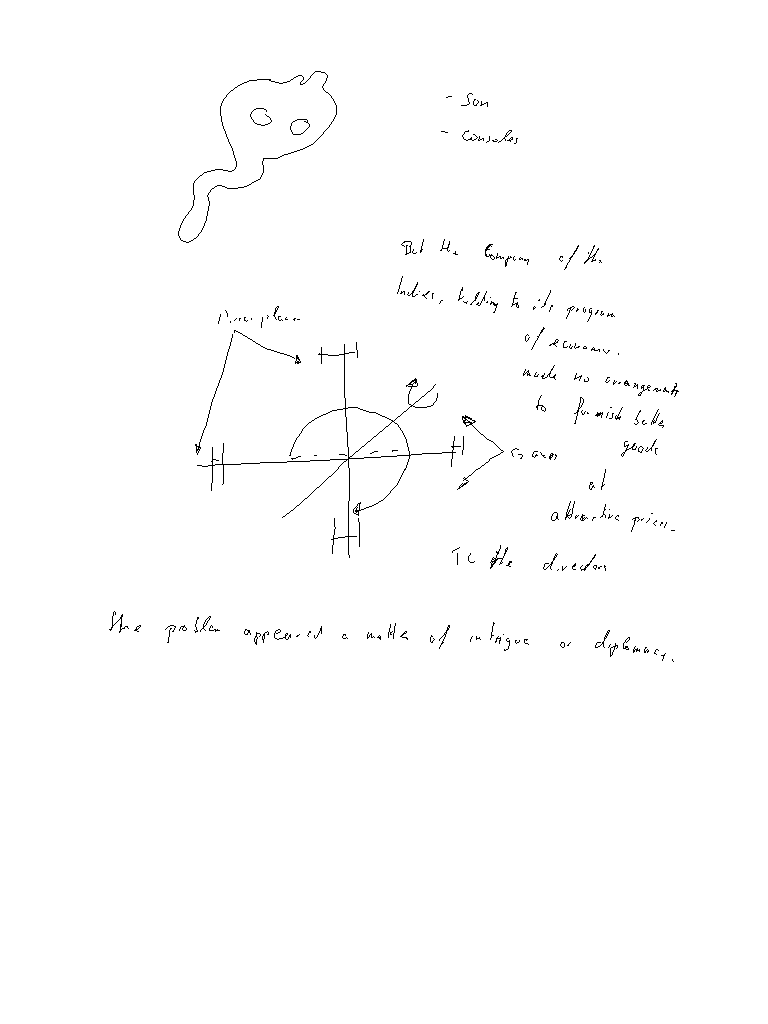 - Son
- consoles
But the Company of the
Indies, holding to its program
of economy.
made no arrangements
to furnish better
goods
at
attractive prices.
To the directors
the problem appeared a matter of intrigue or diplomacy.
Mirror planes